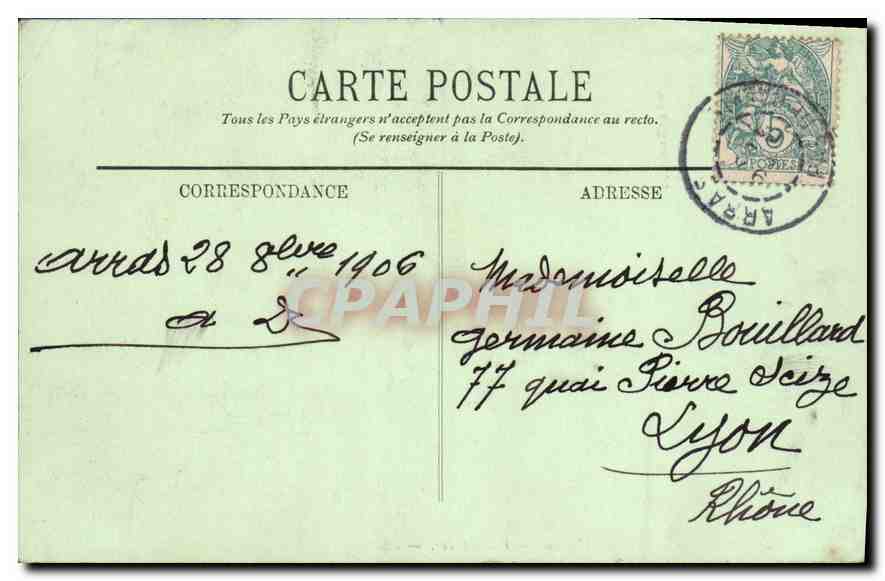 CARTE POSTALE
Tous les Pays étrangers n'acceptent pas la Correspondance au recto.
(Se renseigner à la Poste).
CORRESPONDANCE
ADRESSE
5
POSTES
ARRAS
arras 28 8bre 1906
a D
CPAPHIL
Mademoiselle
germaine Bouillard
77 quai Pierre Scize
Lyon
Rhône